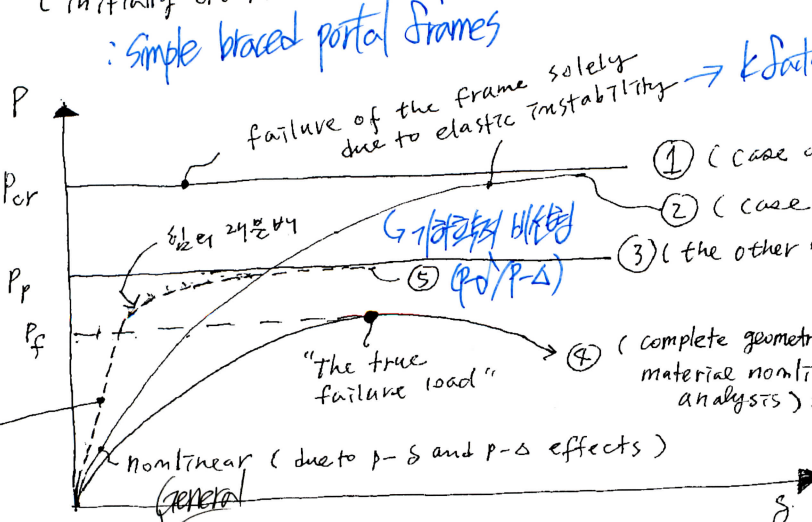 ( initially
: simple braced portal frames
P
failure of the frame solely
due to elastic instability → k fact
Pcr
① ( case
② ( case
힘의 재분배
↳ 기하학적 비선형
(P-δ/P-Δ)
③ ( the other
Pp
⑤
Pf
"The true
failure load"
④ ( complete geometr
material nonli
analysis )
nonlinear ( due to P-δ and P-Δ effects )
General
δ